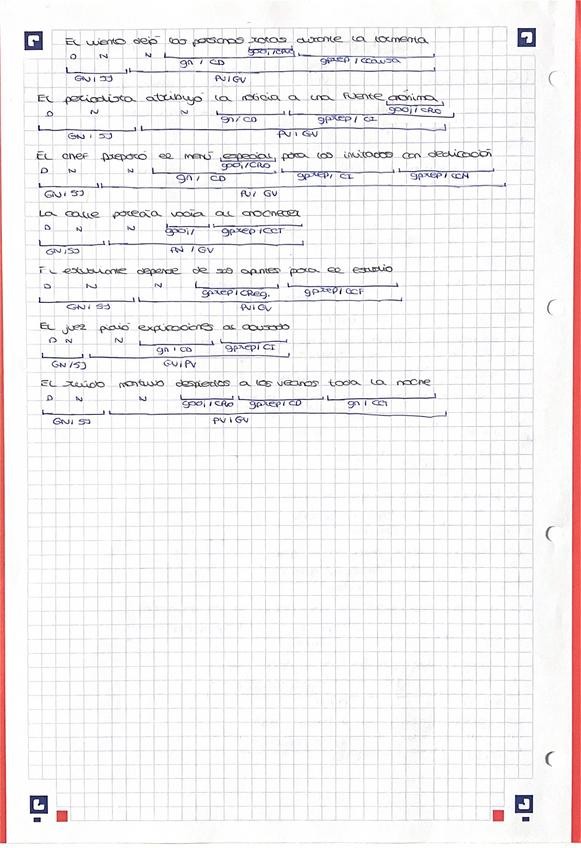 El viento dejó las persianas rotas durante la tormenta
D N N gadj/CPvo
gn / CD gprep / CCausa
GN/SJ PV/GV
El periodista atribuyó la noticia a una fuente anónima
D N N gadj/CPvo
gn/CD gprep/CI
GN/SJ PV/GV
El chef preparó el menú especial para los invitados con dedicación
D N N gadj/CPvo
gn / CD gprep/CI gprep/CCM
GN/SJ PV/GV
La calle parecía vacía al anochecer
D N N gadj/ gprep/CCT
GN/SJ PV / GV
El estudiante depende de sus apuntes para el estudio
D N N gprep/CReg. gprep/CCF
GN/SJ PV/GV
El juez pidió explicaciones al acusado
D N N gn/CD gprep/CI
GN/SJ GV/PV
El ruido mantuvo despiertos a los vecinos toda la noche
D N N gadj/CPvo gprep/CD gn / CCT
GN/SJ PV/GV